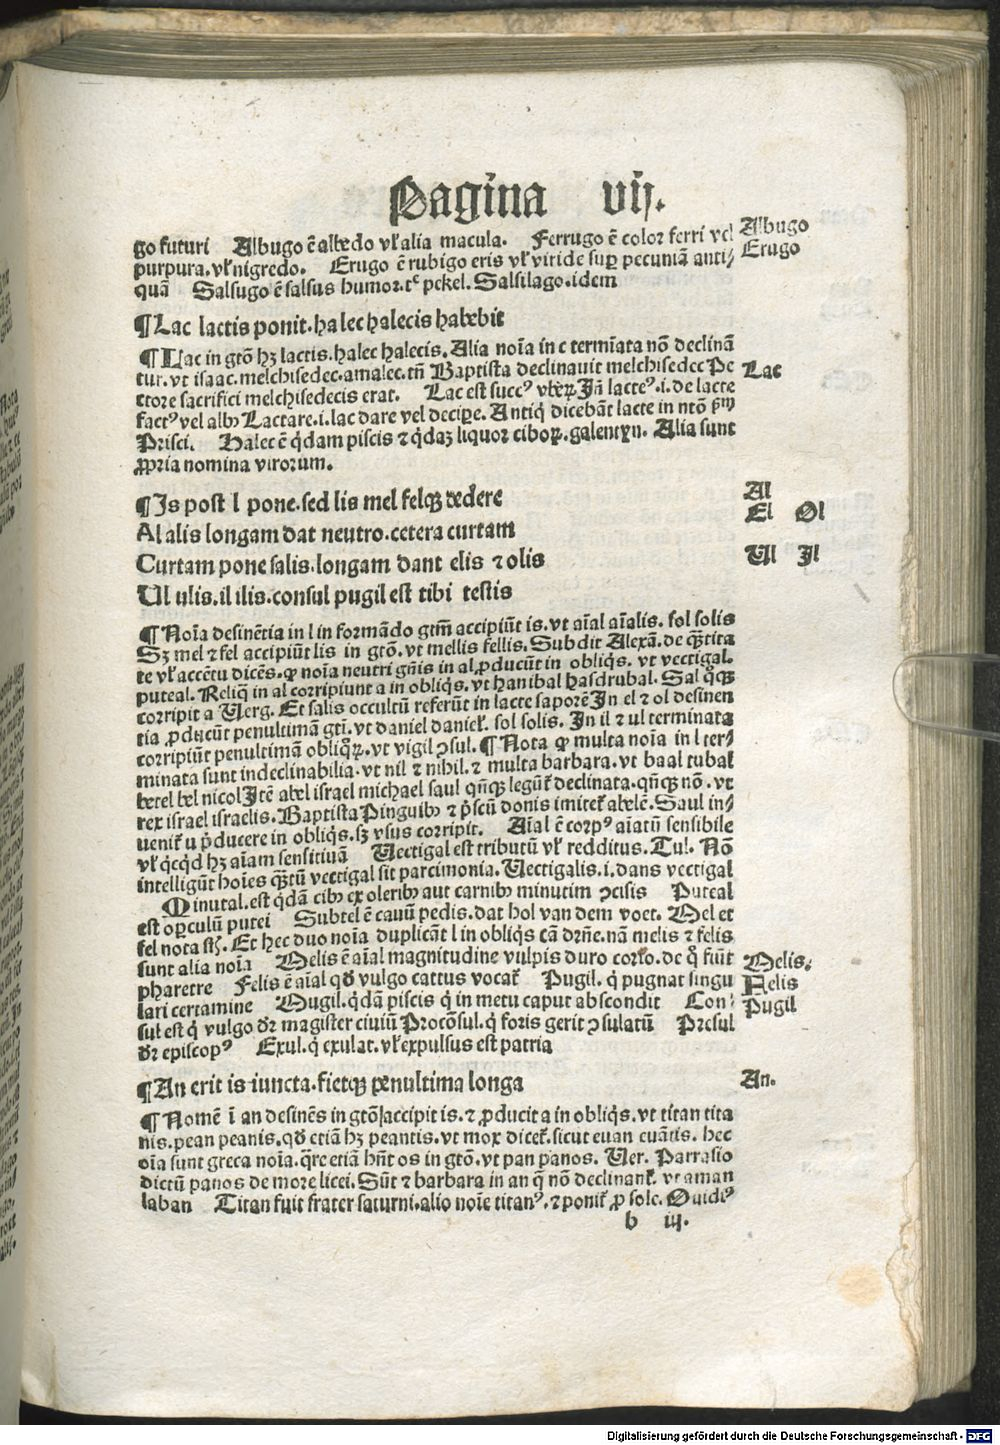 Pagina vij.
go futuri Albugo ē albedo vł alia macula. Ferrugo ē color ferri vel
Albugo
purpura. vł nigredo. Erugo ē rubigo eris vł viride suꝑ pecuniā anti/
Erugo
quā Salsugo ē salsus humor. tͨ pekel. Salsilago. idem
¶ Lac lactis ponit. halec halecis habebit
¶ Lac in gtō hꝫ lactis. halec halecis. Alia noīa in c termīata nō declinā
tur. vt isaac. melchisedec. amalec. tñ Baptista declinauit melchisedec Pe
Lac
ctore sacrifici melchisedecis erat. Lac est succꝰ vbeꝝ. Jñ lacteꝰ. i. de lacte
factꝰ vel albꝰ Lactare. i. lac dare vel deciꝑe. Antiq̇ dicebāt lacte in ntō
Prisci. Halec ē q̇dam piscis ⁊ q̇daꝫ liquor ciboꝝ. galentyn. Alia sunt
ꝓpria nomina virorum.
¶ Is post l pone. sed lis mel felqꝫ dedere
Al
Al alis longam dat neutro. cetera curtam
El Ol
Curtam pone salis. longam dant elis ⁊ olis
Ul Il
Ul ulis. il ilis. consul pugil est tibi testis
¶ Noīa desinētia in l in formādo gtm̄ accipiūt is. vt aīal aīalis. sol solis
Sꝫ mel ⁊ fel accipiūt lis in gtō. vt mellis fellis. Subdit Alexā. de q̄tita
te vł accētu dicēs. ꝙ noīa neutri gn̄is in al ꝓducūt in obliq̇s. vt vectigal.
puteal. Reliq̄ in al corripiunt a in obliq̇s. vt hanibal hasdrubal. Sal q̊qꝫ
corripit a Uerg. Et salis occultū referūt in lacte saporē In el ⁊ ol desinen
tia ꝓducūt penultimā gti. vt daniel danieł. sol solis. In il ⁊ ul terminata
corripiūt penultimā obliq̊ꝝ. vt vigil ↄsul. ¶ Nota ꝙ multa noīa in l ter/
minata sunt indeclinabilia. vt nil ⁊ nihil. ⁊ multa barbara. vt baal tubal
betel bel nicol Itē abel israel michael saul qn̄qꝫ legūt̄ declinata. qn̄qꝫ nō. vt
rex israel israelis. Baptista Pinguibꝰ ⁊ p̄scū donis imitet̄ abelē. Saul in/
uenit̄ u ꝓducere in obliq̇s. sꝫ vsus corripit. Aīal ē corpꝰ aīatū sensibile
vł qcqd hꝫ aīam sensitiuā Uectigal est tributū vł redditus. Tul. Nō
intelligūt hoīes q̄tū vectigal sit parcimonia. Uectigalis. i. dans vectigal
Minutal. est q̇dā cibꝰ ex oleribꝰ aut carnibꝰ minutim ↄcisis Puteal
est oꝑculū putei Subtel ē cauū pedis. dat hol van dem voet. Mel et
fel nota st̄. Et hec duo noīa duplicāt l in obliq̇s cā dr̄n̄e. nā melis ⁊ felis
sunt alia noīa Melis ē aīal magnitudine vulpis duro corīo. de q̊ fiūt
Melis.
pharetre Felis ē aīal qđ vulgo cattus vocat̄ Pugil. q̇ pugnat singu
Felis
lari certamine Mugil. q̇dā piscis q̇ in metu caput abscondit Con/
Pugil
sul est q̇ vulgo dr̄ magister ciuiū Procōsul. q̇ foris gerit ↄsulatū Presul
dr̄ episcopꝰ Exul. q̇ exulat. vł expulsus est patria
¶ An erit is iuncta. fietqꝫ penultima longa
An.
¶ Nomē ī an desinēs in gtō accipit is. ⁊ ꝓducit a in obliq̇s. vt titan tita
nis. pean peanis. qđ etiā hꝫ peantis. vt mox dicet̄. sicut euan euātis. hec
oīa sunt greca noīa. q̄re etiā hn̄t os in gtō. vt pan panos. Uer. Parrasio
dictū panos de more licei. Sūt ⁊ barbara in an q̄ nō declinant̄. vt aman
laban Titan fuit frater saturni. alio noīe titanꝰ. ⁊ ponit̄ ꝓ sole. Ouidiꝰ
b iij.
Digitalisierung gefördert durch die Deutsche Forschungsgemeinschaft - DFG